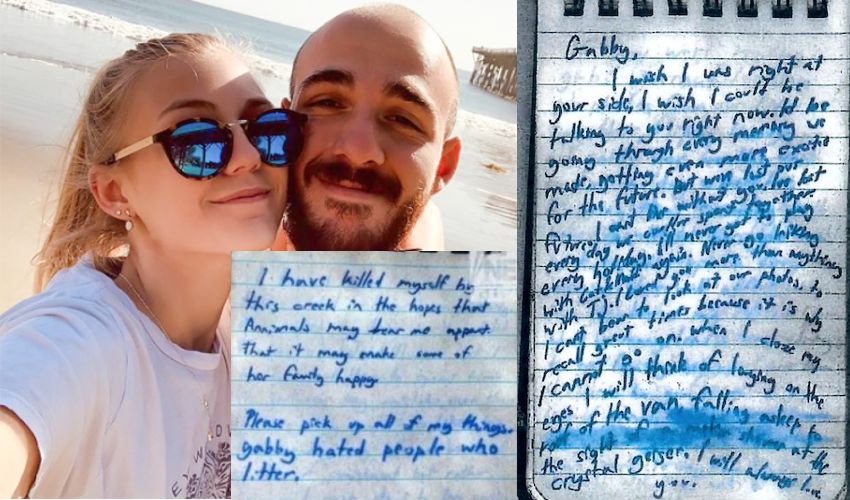 Gabby,
I wish I was right at
your side, I wish I could be
talking to you right now. I'd be
going through every memory we
made, getting even more excited
for the future. But we've lost our
future. I can't live without you. I've lost
every day we could've spent together
every holiday. I'll never get to play
with again. Never go hiking
with TJ. I loved you more than anything
I can't bear to look at our photos, to
recall great times because it is why
I cannot go on. When I close my
eyes I will think of laughing on the
roof of the van, falling asleep to
the sight of at the
crystal geiser. I will always love
you.
I have killed myself by
this creek in the hopes that
Annimals may tear me appart
that it may make some of
her family happy
Please pick up all of my things.
gabby hated people who
litter.